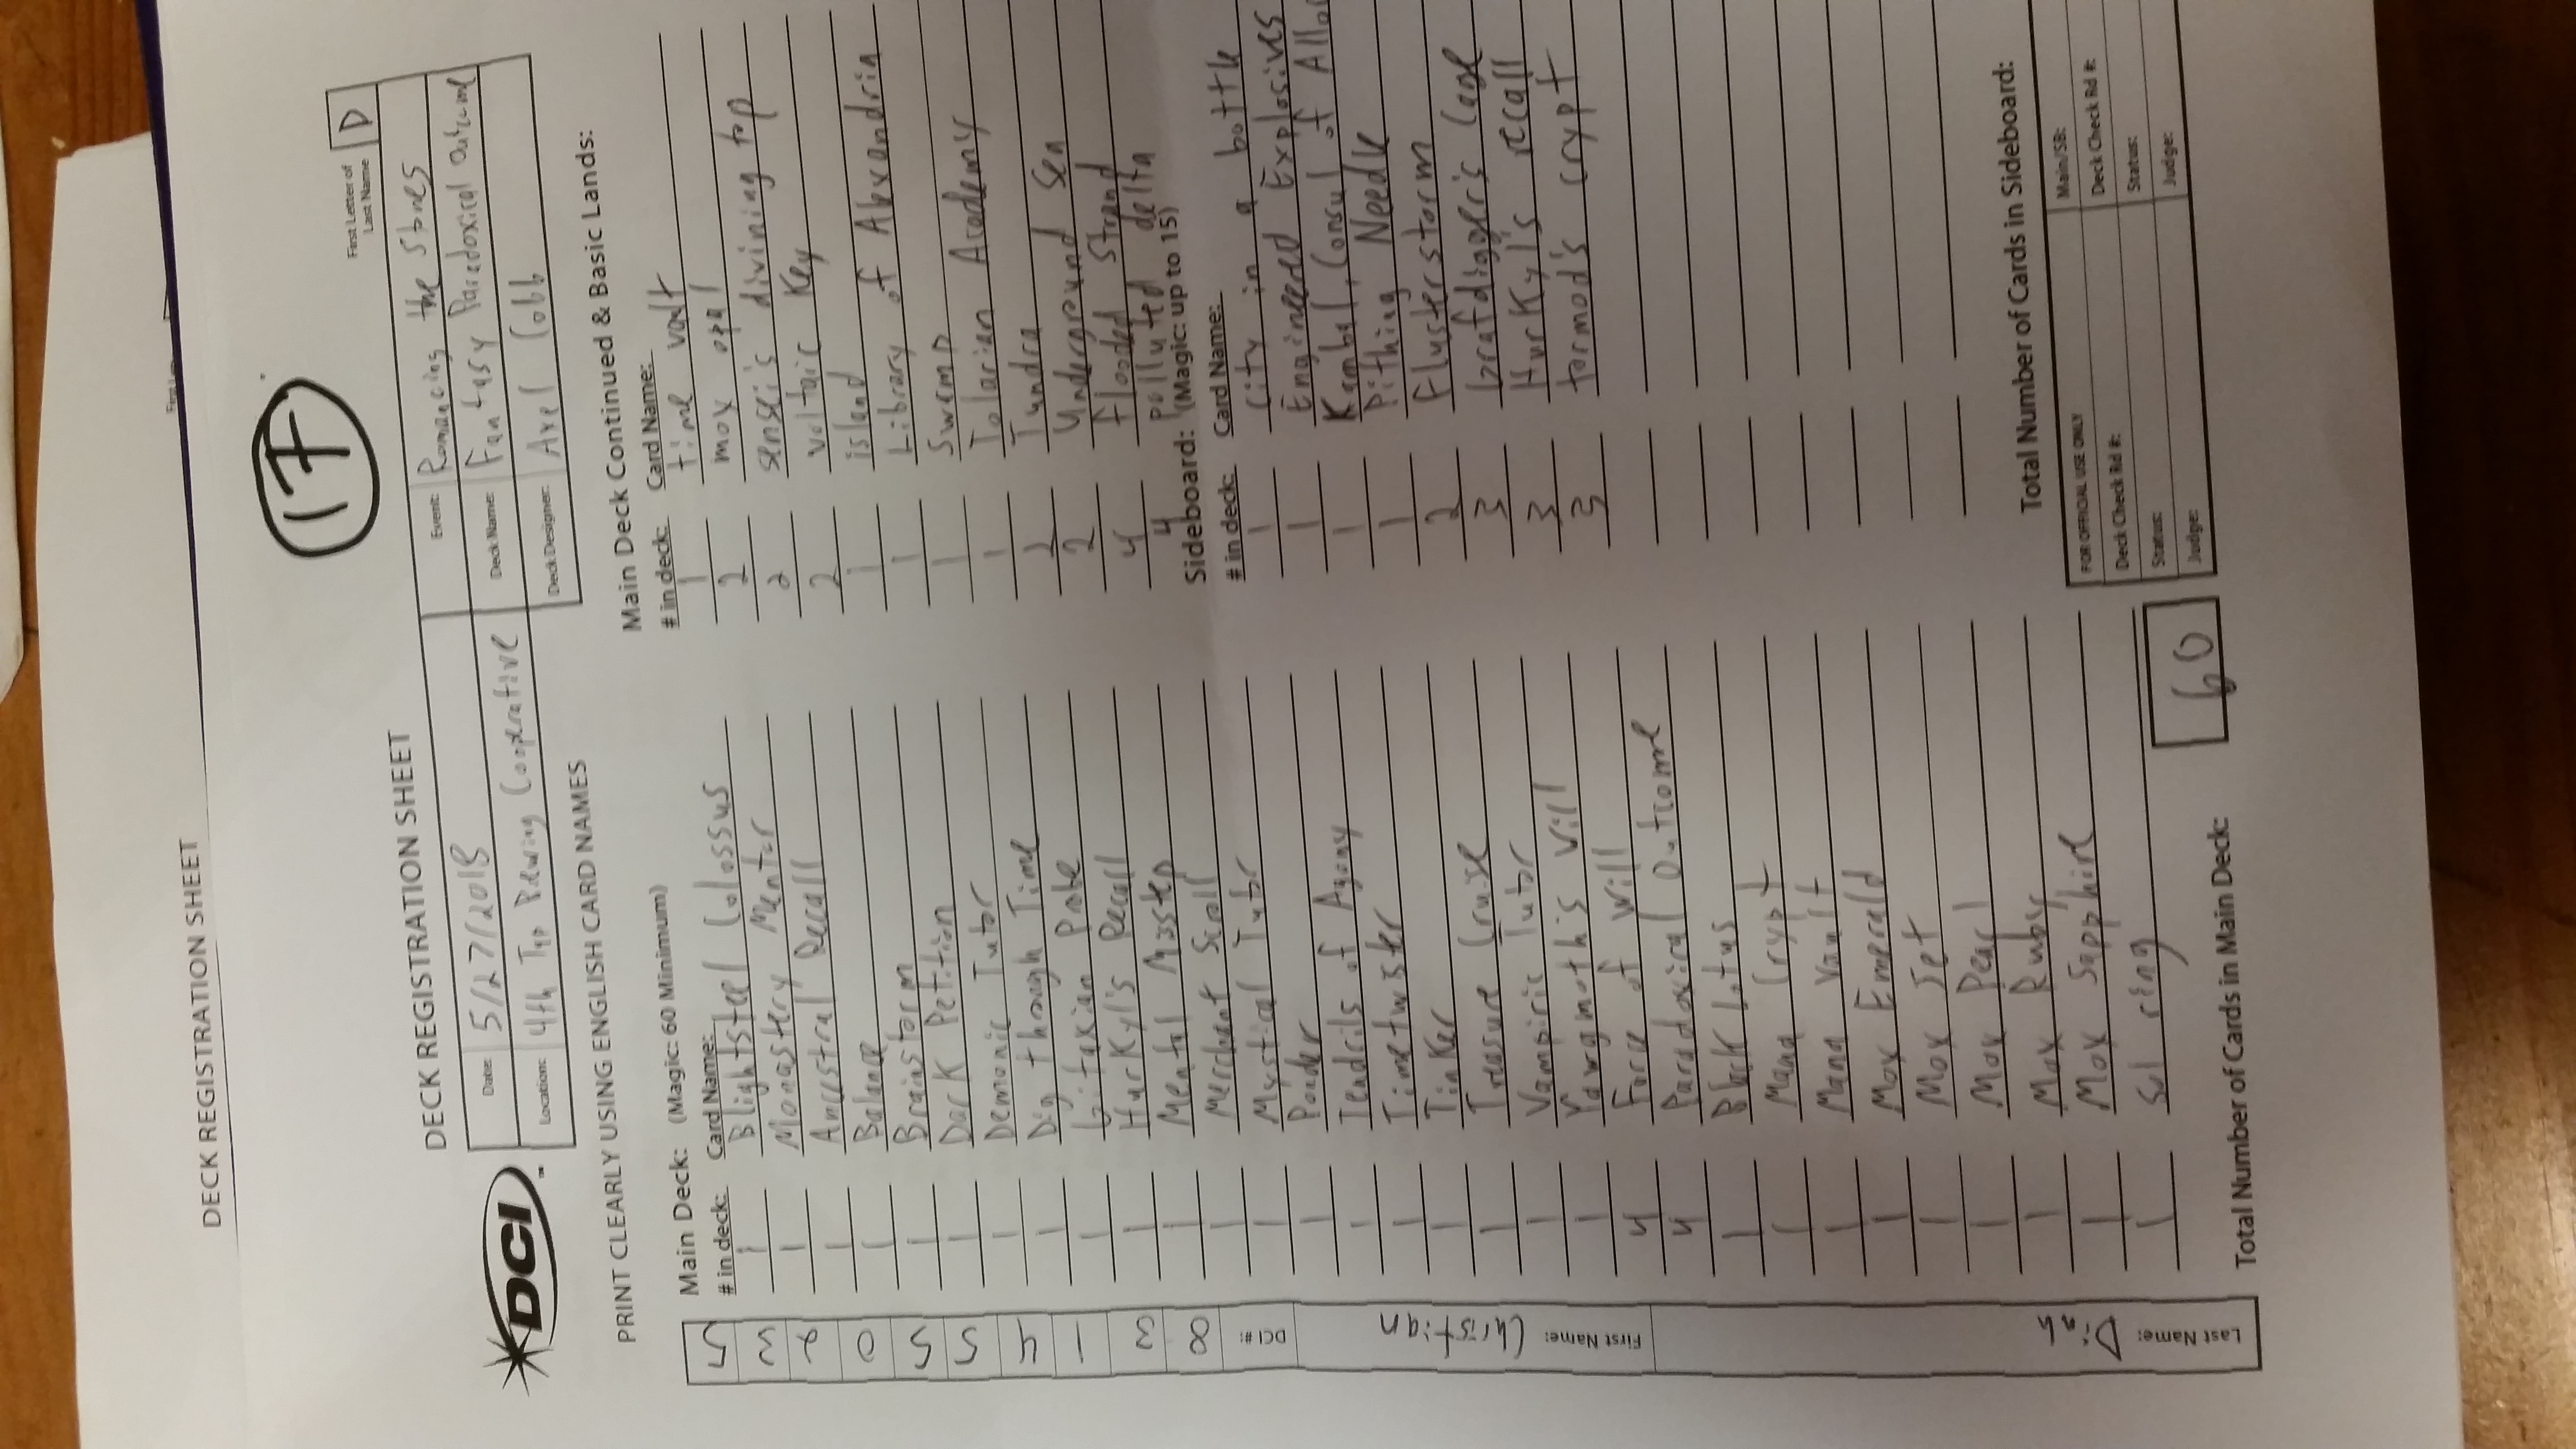 DECK REGISTRATION SHEET
17
First Letter of
Last Name
D
DECK REGISTRATION SHEET
DCI
Date: 5/27/2018
Location: 4th Tap Brewing Cooperative
Event: Romancing the Stones
Deck Name: Fantasy Paradoxical Outcome
Deck Designer: Axel Cobb
PRINT CLEARLY USING ENGLISH CARD NAMES
Last Name: Dinh
First Name: Christian
DCI #: 8314550235
Main Deck: (Magic: 60 Minimum)
# in deck: Card Name:
1 Blightsteel Colossus
1 Monastery Mentor
1 Ancestral Recall
1 Balance
1 Brainstorm
1 Dark Petition
1 Demonic Tutor
1 Dig through Time
1 Gitaxian Probe
1 Hurkyl's Recall
1 Mental Misstep
1 Merchant Scroll
1 Mystical Tutor
1 Ponder
1 Tendrils of Agony
1 Timetwister
1 Tinker
1 Treasure Cruise
1 Vampiric Tutor
1 Yawgmoth's Will
4 Force of Will
4 Paradoxical Outcome
1 Black Lotus
1 Mana Crypt
1 Mana Vault
1 Mox Emerald
1 Mox Jet
1 Mox Pearl
1 Mox Ruby
1 Mox Sapphire
1 Sol ring
Total Number of Cards in Main Deck: 60
Main Deck Continued & Basic Lands:
# in deck: Card Name:
1 time vault
2 mox opal
2 sensei's divining top
2 voltaic Key
1 island
1 Library of Alexandria
1 Swamp
1 Tolarian Academy
Tundra
2 Underground Sea
4 flooded Strand
4 polluted delta
Sideboard: (Magic: up to 15)
# in deck: Card Name:
1 City in a bottle
1 Engineered Explosives
1 Kambal, Consul of Allo
1 Pithing Needle
2 Flusterstorm
3 Grafdigger's Cage
3 Hurkyl's recall
3 tormod's crypt
Total Number of Cards in Sideboard:
FOR OFFICIAL USE ONLY
Main/SB:
Deck Check Rd #:
Deck Check Rd #:
Status:
Status:
Judge:
Judge: